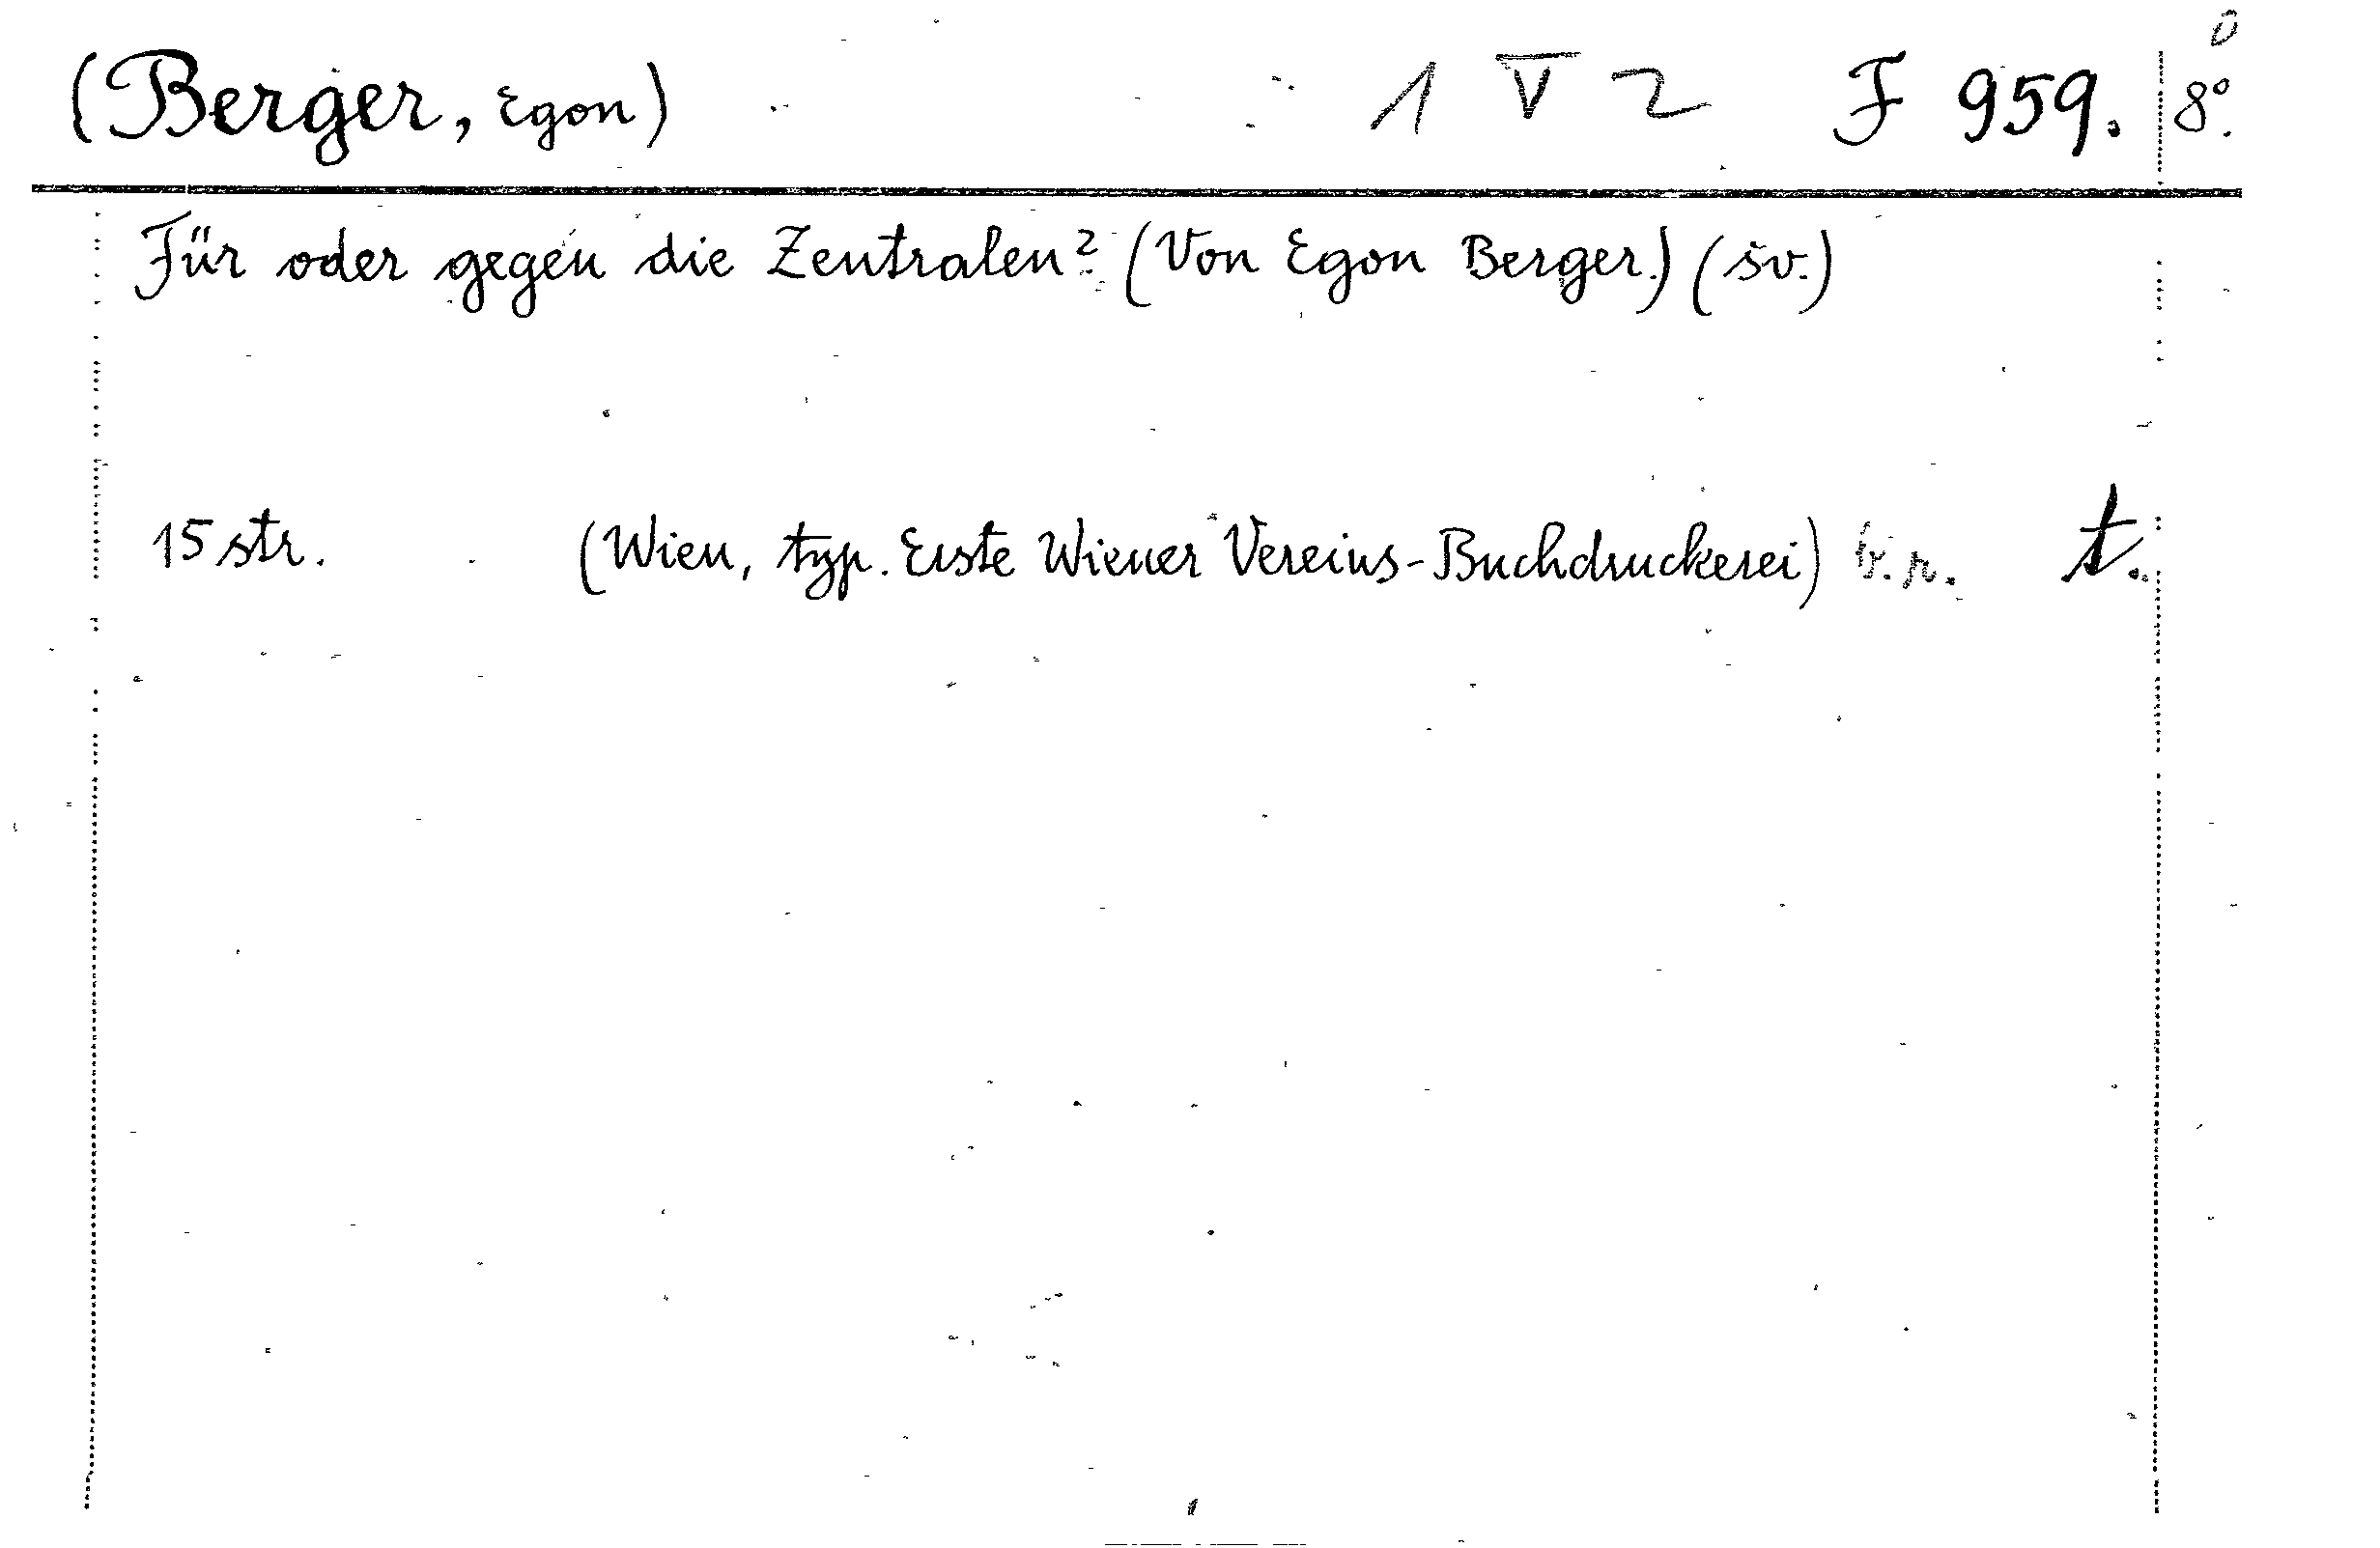 (Berger, Egon) 1 V 2 F 959. 8°.
Für oder gegen die Zentralen? (Von Egon Berger.) (šv.)
15 str. (Wien, typ. Erste Wiener Vereins-Buchdruckerei) b.r. t.